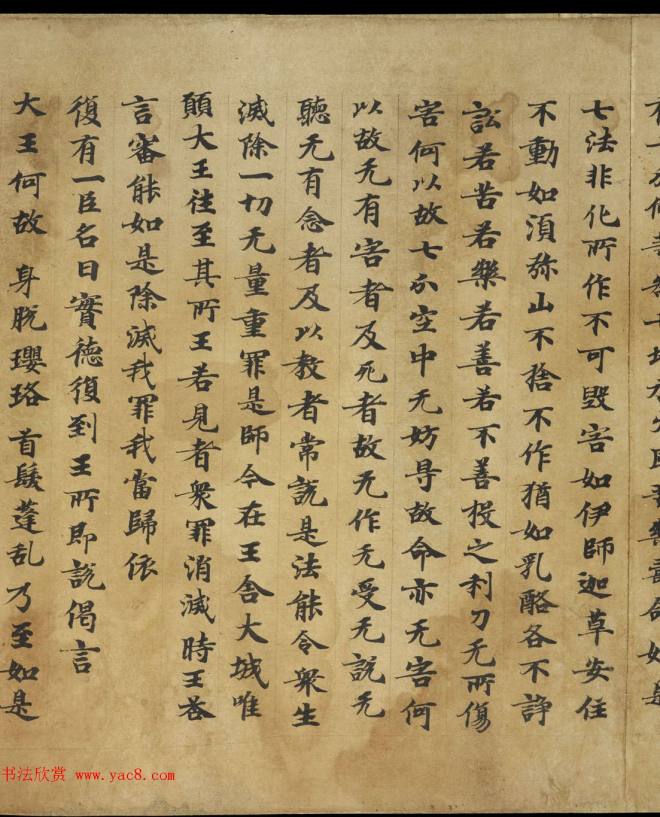 苦樂壽命如是
七法非化所作不可毀害如伊師迦草安住
不動如湏弥山不捨不作猶如乳酪各不諍
訟若苦若樂若善若不善投之利刀无所傷
害何以故七分空中无妨㝵故命亦无害何
以故无有害者及死者故无作无受无說无
聽无有念者及以教者常說是法能令衆生
滅除一切无量重罪是師今在王舍大城唯
願大王往至其所王若見者衆罪消滅時王荅
言審能如是除滅我罪我當歸依
復有一臣名曰實德復到王所即說偈言
大王何故 身脫瓔珞 首髮蓬乱 乃至如是
书法欣赏 www.yac8.com